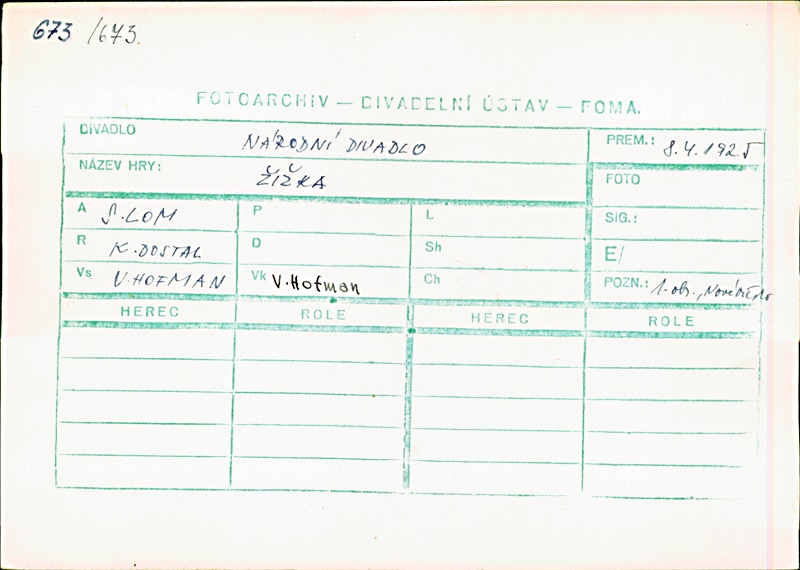 673 /673.
FOTOARCHIV — DIVADELNÍ ÚSTAV — FOMA.
DIVADLO NÁRODNÍ DIVADLO PREM.: 8.4.1925
NÁZEV HRY: ŽIŽKA FOTO
A S.LOM P L SIG.:
R K.DOSTAL D Sh E/
Vs V.HOFMAN Vk V.Hofman Ch POZN.: 1.obr., Nové Město
HEREC ROLE HEREC ROLE